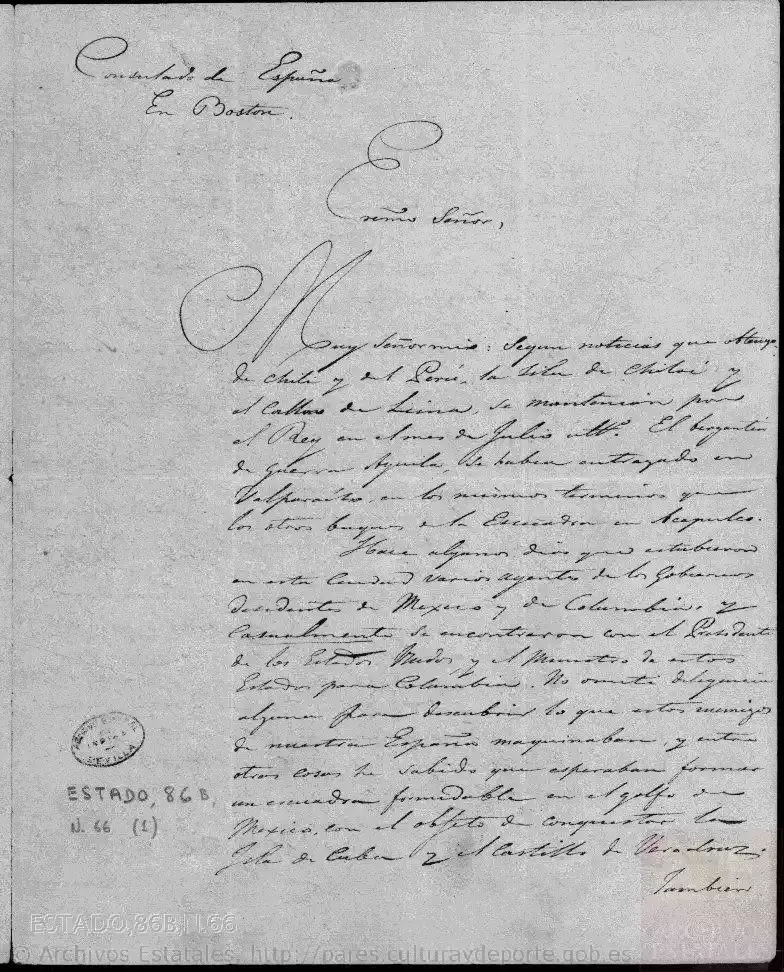 Consulado de España
En Boston.
Exmo Señor,
Muy Señor mio: Segun noticias que obtengo
de Chile y del Perú, la Isla de Chiloé y
el Callao de Lima, se mantenian por
el Rey en el mes de Julio ulto. El bergantin
de guerra Aquila, se habia entregado en
Valparaiso, en los mismos terminos que
los otros buques de la Escuadra en Acapulco.
Hace algunos dias que estubieron
en esta Ciudad varios agentes de los Gobiernos
disidentes de Mexico y de Columbia, y
Casualmente se encontraron con el Presidente
de los Estados Unidos y el Ministro de estos
Estados para Columbia. No omití diligencia
alguna para descubrir lo que estos enemigos
de nuestra España maquinaban, y entre
otras cosas he sabido que esperaban formar
un escuadra formidable en el golfo de
Mexico, con el objeto de conquistar la
Isla de Cuba y el Castillo de Veracruz.
Tambien
INDIAS
SEVILLA
ESTADO, 86B,
N. 66 (1)
ESTADO,86B,N.66
© Archivos Estatales, http://pares.culturaydeporte.gob.es